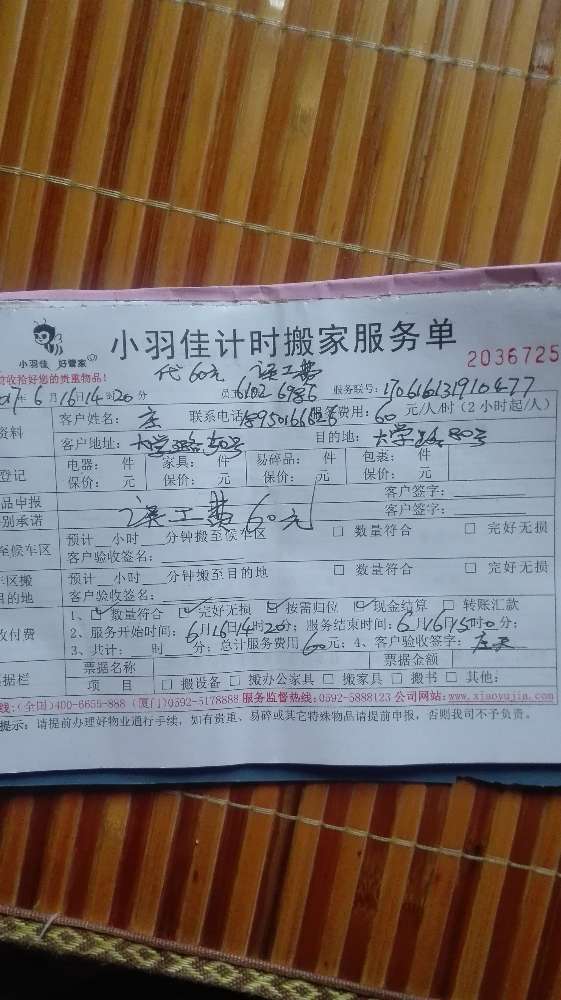 小羽佳 好管家
小羽佳计时搬家服务单
2036725
收拾好您的贵重物品！
代 60元 误工费
17年6月16日14时20分 员工6102 6986 服务联号：1706161319104 77
资料
客户姓名：庄 联系电话 18950166626 服务费用：60元/人/时（2小时起/人）
客户地址：大学路 号 目的地：大学路80号
登记
电器： 件 家具： 件 易碎品： 件 包裹： 件
保价： 元 保价： 元 保价： 元 保价： 元
品申报 客户签字：
别承诺 误工费60元 客户签字：
至候车区
预计 小时 分钟搬至候车区 □ 数量符合 □ 完好无损
客户验收签名：
车区搬
目的地
预计 小时 分钟搬至目的地 □ 数量符合 □ 完好无损
客户验收签名：
收付费
1、☑数量符合 ☑完好无损 ☑按需归位 ☑现金结算 □ 转账汇款
2、服务开始时间：6月16日14时20分；服务结束时间：6月16日15时0分；
3、共计： 时 分；总计服务费用60元；4、客户验收签字：
据栏
票据名称 票据金额
项 目 □ 搬设备 □ 搬办公家具 □ 搬家具 □ 搬书 □ 其他:
线：(全国)400-6655-888 (厦门)0592-5178888 服务监督热线：0592-5888123 公司网站：www.xiaoyujia.com
提示：请提前办理好物业通行手续，如有贵重、易碎或其它特殊物品请提前申报，否则我司不予负责。